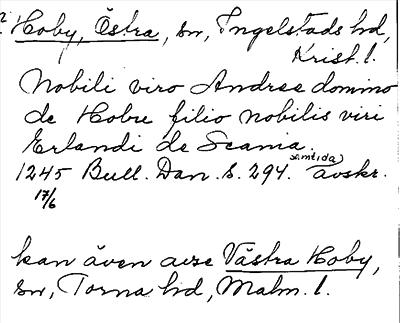 Hoby, Östra, sn, Ingelstads hd,
Krist. l.
Nobili viro Andree domino
de Hobre filio nobilis viri
Erlandi de Scania.
samtida
1245 Bull. Dan. s. 294. avskr.
17/6
kan även avse Västra Hoby,
sn, Torna hd, Malm. l.